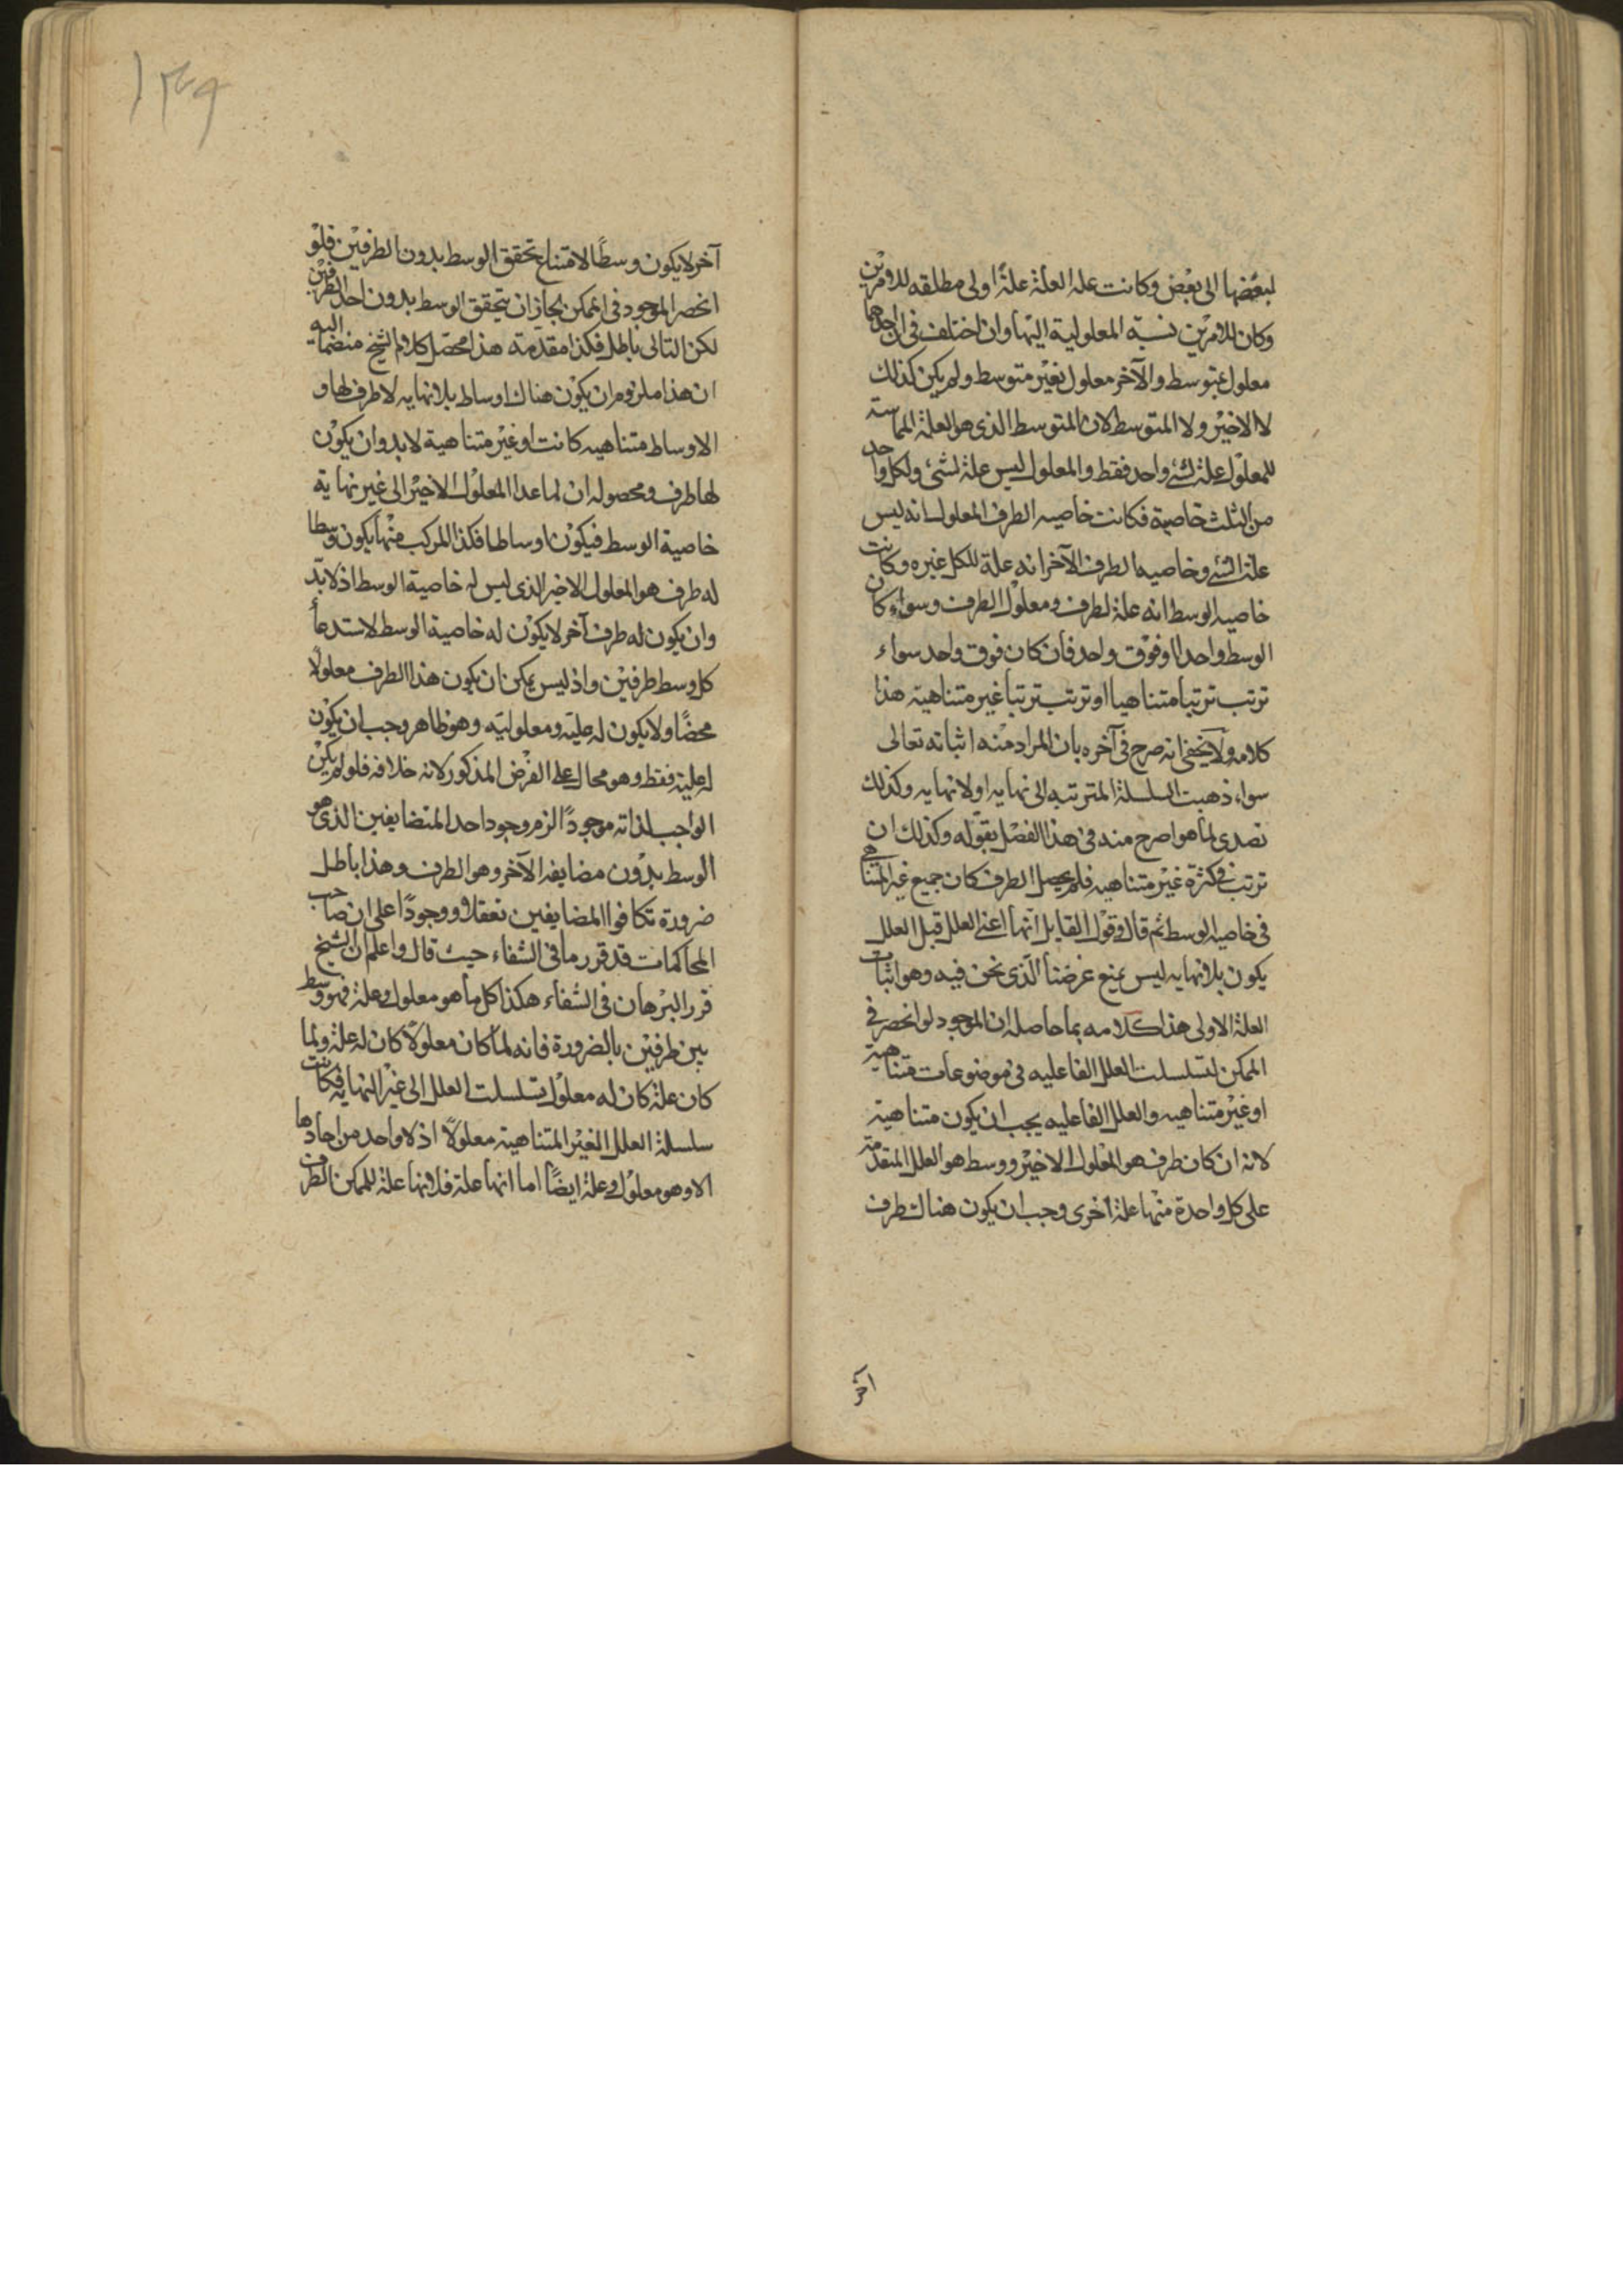 لبعضها الى بعض وكانت علة العلة علةً اولى مطلقه للامرين
وكان للامرين نسبة المعلولية اليها وان اختلف فى ان احدهما
معلول بمتوسط والآخر معلول بغير متوسط ولم يكن كذلك
لا الاخير ولا المتوسط لان المتوسط الذى هو العلة المماسة
للمعلول علة لشئ واحد فقط والمعلول ليس علة لشئ ولكل واحد
من الثلث خاصية فكانت خاصيه الطرف المعلول انه ليس
علة لشئ وخاصيه الطرف الآخر انه علة للكل غيره وكانت
خاصيه الوسط انه علة لطرف ومعلول لطرف وسواء كان
الوسط واحدا او فوق واحد فان كان فوق واحد سواء
ترتب ترتبا متناهيا او ترتب ترتبا غير متناهية هذا
كلامه ولا يخفى انه صرح فى آخره بان المراد منه اثباته تعالى
سواء ذهبت السلسلة المترتبه الى نهايه او لا نهايه وكذلك
تصدى لما هو اصرح منه فى هذا الفصل بقوله وكذلك ان
ترتب فى كثرة غير متناهيه فلم يحصل الطرف كان جميع غير المتناهى
فى خاصيه الوسط ثم قال وقول القايل انها اعنى العلل قبل العلل
يكون بلا نهايه ليس يمنع غرضنا الذى نحن فيه وهو اثبات
العلة الاولى هذا كلامه بما حاصله ان الموجود لو انحصر فى
الممكن لتسلسلت العلل الفاعليه فى موضوعات متناهية
او غير متناهيه والعلل الفاعليه يجب ان يكون متناهية
لانه ان كان طرف هو المعلول الاخير ووسط هو العلل المتقدمة
على كل واحدة منها علة اخرى وجب ان يكون هناك طرف
آخر
١٣٩
آخر لا يكون وسطًا لامتناع تحقق الوسط بدون الطرفين فلو
انحصر الموجود فى الممكن لجاز ان يتحقق الوسط بدون احد الطرفين
لكن التالى باطل فكذا مقدمته هذا محصل كلام الشيخ منضما اليه
ان هذا ملزوم ان يكون هناك اوساط بلا نهايه لا طرف لها و
الاوساط متناهيه كانت او غير متناهية لا بد وان يكون
لها طرف ومحصوله ان لما عدا المعلول الاخير الى غير نهاية
خاصية الوسط فيكون اوساطا فكذا المركب منها يكون وسطا
له طرف هو المعلول الاخير الذى ليس له خاصية الوسط اذ لا بد
وان يكون له طرف آخر لا يكون له خاصية الوسط لاستدعاء
كل وسط طرفين واذ ليس يمكن ان يكون هذا الطرف معلولا
محضًا ولا يكون له علية ومعلولية وهو ظاهر وجب ان يكون
له علية فقط وهو محال على الفرض المذكور لانه خلافه فلو لم يكن
الواجب لذاته موجودًا لزم وجود احد المتضايفين الذى هو
الوسط بدون مضايفه الآخر وهو الطرف وهذا باطل
ضرورة تكافوا المضايفين تعقلا ووجودًا على ان صاحب
المحاكمات قد قرر ما فى الشفاء حيث قال واعلم ان الشيخ
قرر البرهان فى الشفاء هكذا كل ما هو معلول وعلة فهو وسط
بين طرفين بالضرورة فانه لما كان معلولا كان له علة ولما
كان علة كان له معلول تسلسلت العلل الى غير النهايه فكانت
سلسلة العلل الغير المتناهية معلولاً اذ لا واحد من احادها
الا وهو معلول وعلة ايضًا اما انها علة فلانها علة للممكن الطرف